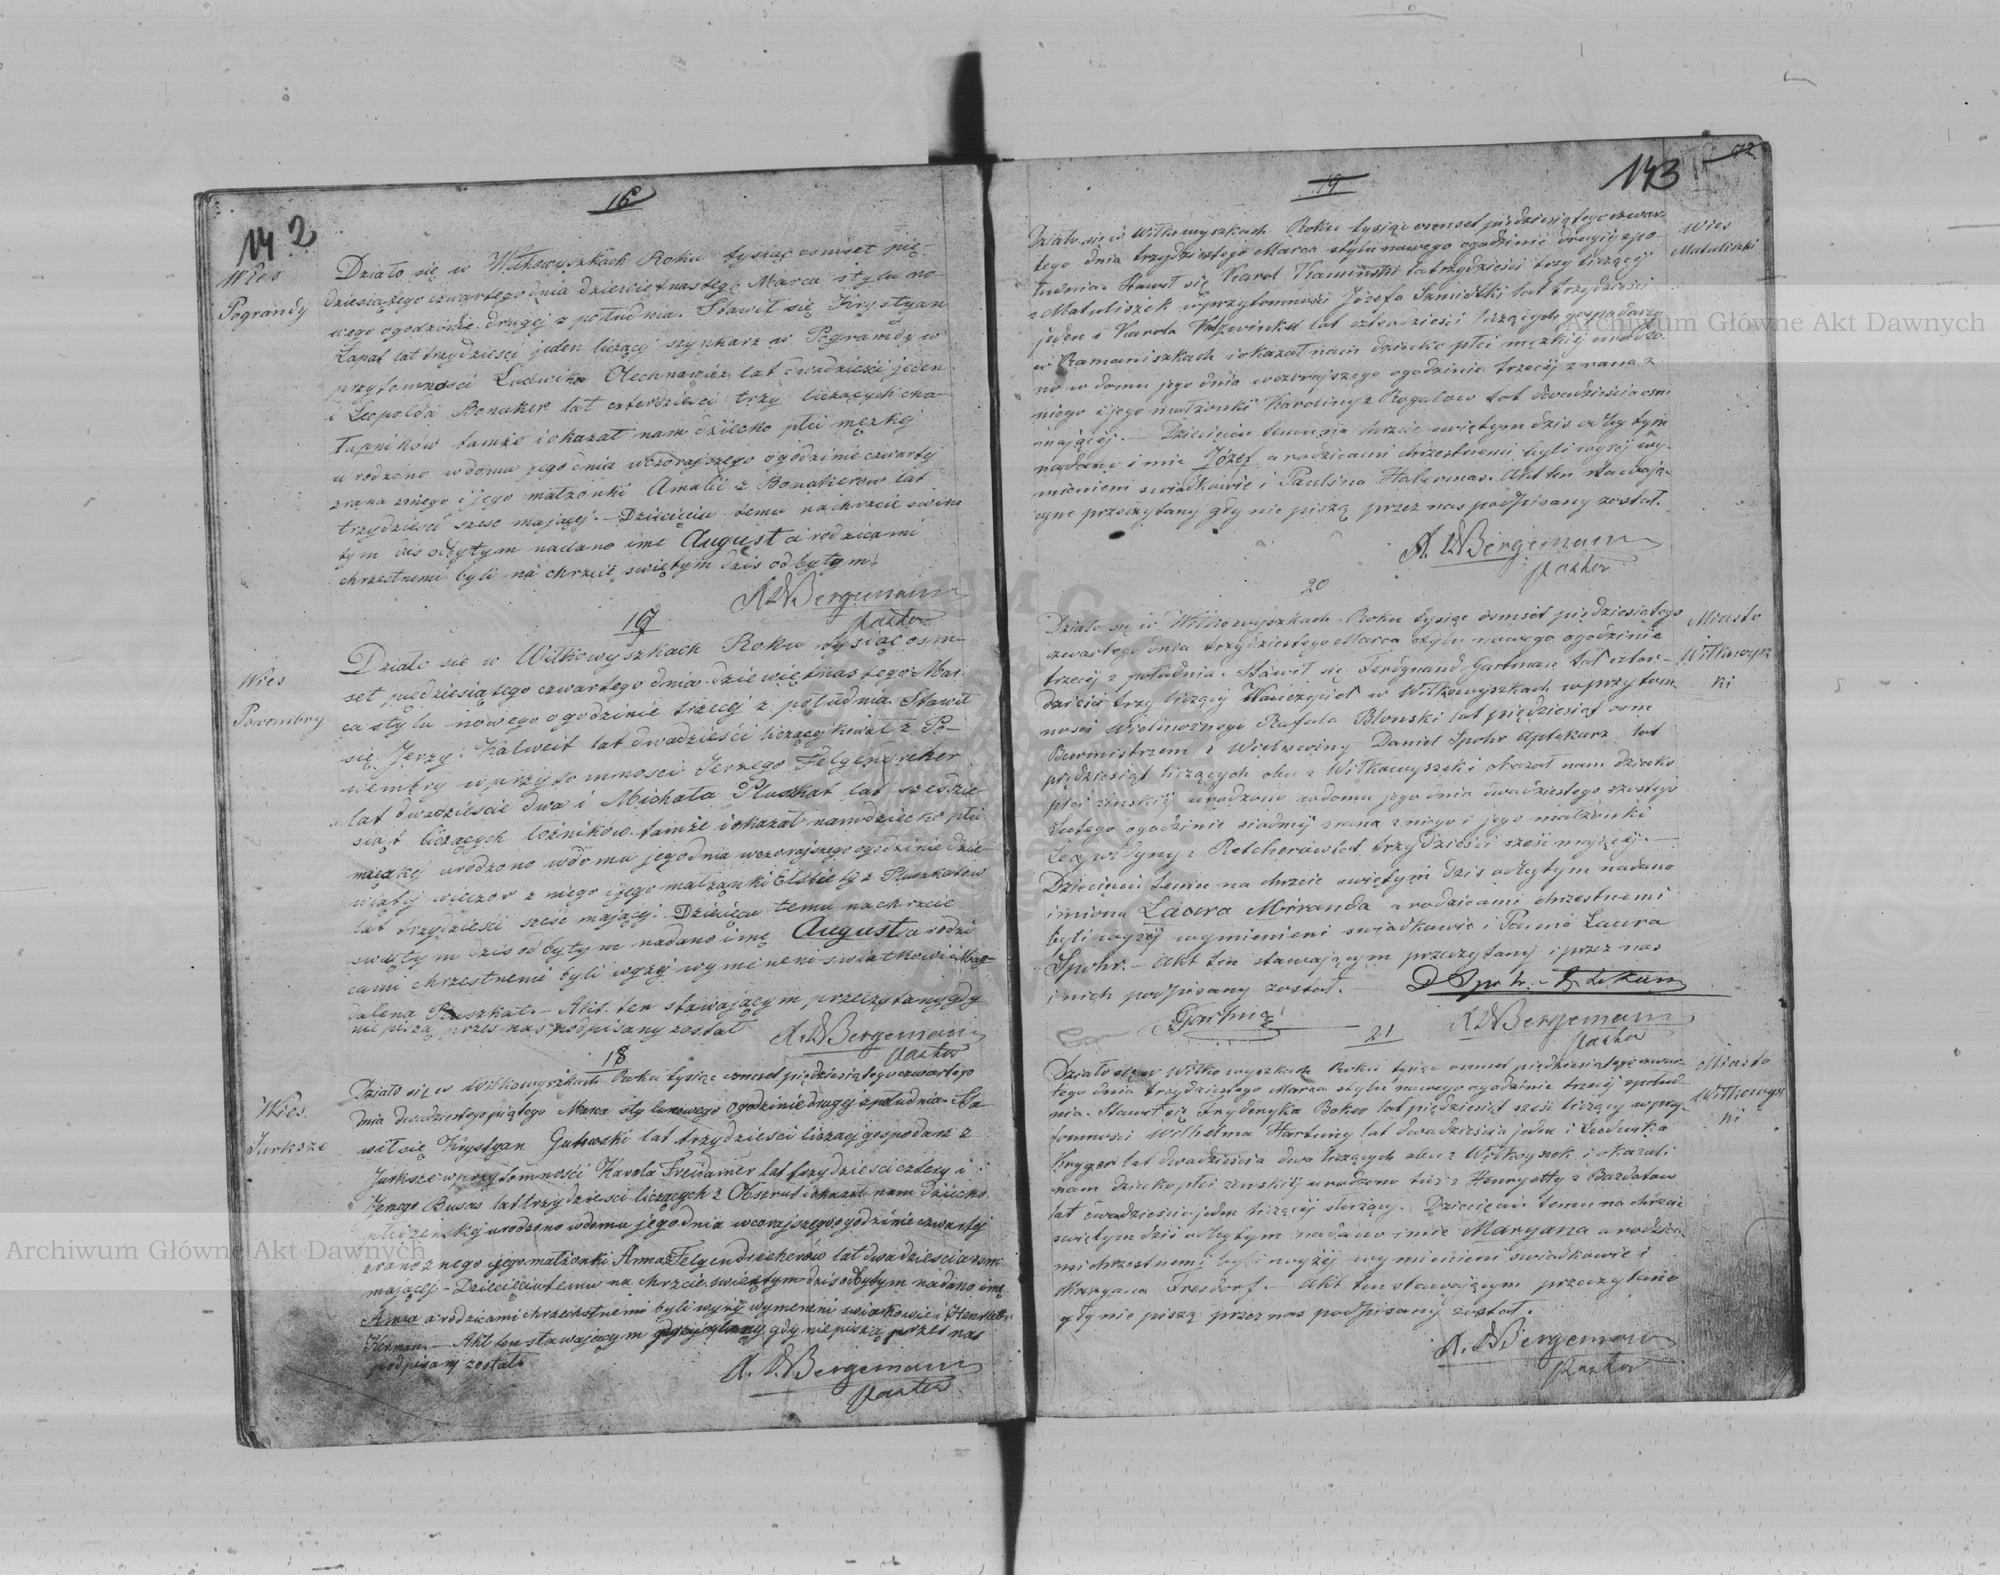 142
16
Wies
Pograndy
Działo się w Wiłkowyszkach Roku tysiąc osmset pię-
dziesiątego czwartego dnia dziewiętnastego Marca stylu no-
wego ogodzinie drugej z południa. Stawił się Krystyan
Łapat lat trzydziesci jeden liczący szynkarz w Pograndy w
przytomnosci Ludwika Olechnawicz lat dwadziesci jeden
i Leopolda Bonaker lat czterdziesci trzy liczących cha-
łupników tamże i okazał nam dziecko płci męzkej
urodzone wdomu jego dnia wczorajszego ogodzinie czwartej
zrana zniego i jego małżonki Amalii z Bonakerow lat
trzydziesci szesc mającej. — Dziecięciu temu nachrzcie swię
tym dis odbytym nadano imie August a rodzicami
chrzestnemi byli na chrzcie swiętym dzis odbytym
A. W Bergemann
Pastor
17
Wies
Powembry
Działo sie w Wiłkowyszkach Roku tysiąc osm-
set pędziesiątego czwartego dnia dziewiętnastego Mar-
ca stylu nowego ogodzinie trzecej z południa. Stawił
się Jerzy Kalweit lat dwadzieści liczącej kowal z Po-
wembry wprzytomnosci Jerzego Felgendreher
lat dwadzieście dwa i Michała Pluszkat lat szesdzie-
siąt liczących rożników tamże i okazał nam dziecko płci
męzkej urodzono wdomu jego dnia wczorajszego ogodzinie dzie-
wiątej wieczor z niego i jego małżąnki Elsbiety z Pluszkatow
lat trzydzieści szesc mającej. Dziecięciu temu nachrzcie
swiętym dzis odbytym nadano imę August a rodzi
cami chrzestnemi byli wyżej wymineni swiatkowi i Mag-
dalena Pluszkat. — Akt ten stawającym przeczytany gdy
nie piszą przes nas podpisany został
A. W Bergemann
Pastor
18
Wies
Jurksze
Działo się w Wiłkowyszkach Roku tysiąc osmset piędziesiątego czwartego
dnia dwudziestego piątego Marca stylu nowego ogodzinie drugej z południa. Sta
wił się Krystyan Gutowski lat trzydziesci liczacy gospodarz z
Jurksze wprzytomności Karola Freidamer lat trzydziesci cztery i
Jerzego Busas lat trzydziesci liczących z Obszrut i okazał nam dziecko
płci żenskej urodzono wdomu jego dnia wczorajszego ogodzinie czwartej
zrana z nego i jego małżonki Anna z Felgendreherów lat dwadziescia osm
mającej. — Dziecięciu temu na chrzcie swiętym dzis odbytym nadano imę
Anna a rodzicami chrzechstnemi byli wyżej wymieneni swiatkowie i Henriette
Herman. — Akt ten stawającym przeczytany gdy nie piszą przes nas
podpisany został.
A. W Bergemann
Pastor
143
72
19
Wies
Matuliszki
Działo się w Wiłkowyszkach Roku tysiąc osmset piędziesiątego czwar-
tego dnia trzydziestego Marca stylu nowego ogodzinie drugiej z po
łudnia. Stawił się Karol Kaminski lat trzydzieści trzy liczący
z Matuliszek wprzytomności Józefa Szmidtki lat trzydzieści
jeden i Karola lat czterdzieści liczących gospodarzy
w Ramaniszkach i okazał nam dziecko płci męzkiej urodzo-
no w domu jego dnia wczorajszego ogodzinie trzeciej z rana z
niego i jego małżonki Karoliny z Rogalow lat dwadzieścia osm
mającej. — Dziecięciu temu na chrzcie swiętym dzis odbytym
nadano imie Józef a rodzicami chrzestnemi byli wyżej wy-
mienieni swiadkowie i Paulina Haberman. Akt ten stawają-
cym przeczytany gdy nie piszą przez nas podpisany został.
A. W Bergemann
Pastor
20
Miasto
Wiłkowysz
ki
Działo się w Wiłkowyszkach Roku tysiąc osmset piędziesiątego
czwartego dnia trzydziestego Marca stylu nowego ogodzinie
trzeciej z południa. Stawił się Ferdynand Gartman lat czter-
dzieści trzy liczący Nauczyciel w Wiłkowyszkach wprzytom-
nosci Wielmożnego Rafała Blonski lat piędziesiąt osm
Burmistrzem i Daniel Spohr Aptekarz lat
piędziesiąt liczących obu z Wiłkowyszek i okazał nam dziecko
płci żenskiej urodzono wdomu jego dnia dwudziestego szostego
Lutego ogodzinie siodmej z rana z niego i jego małżonki
z Retcherow lat trzydzieści sześć mającej. —
Dziecięciu temu na chrzcie swiętym dzis odbytym nadano
imiona Laura Miranda a rodzicami chrzestnemi
byli wyżej wymienieni swiadkowie i Panna Laura
Spohr. — Akt ten stawającym przeczytany i przez nas
i nich podpisany został.
D Spohr
A. W Bergemann
Pastor
21
Miasto
Wiłkowysz
ki
Działo się w Wiłkowyszkach Roku tysiąc osmset piędziesiątego czwar-
tego dnia trzydziestego Marca stylu nowego ogodzinie trzeciej z połud-
nia. Stawił się Frydryka Boker lat piędziesiąt sześć liczący wprzy-
tomności Wilhelma Hartung lat dwadzieścia jeden i Ludwika
Krygger lat dwadzieścia dwa liczących obu z Wiłkowyszek i okazali
nam dziecko płci żenskiej urodzone tuż z Henryetty z Bazdatow
lat dwadzieścia jeden liczącej służącej. Dziecięciu temu na chrzcie
swiętym dziś odbytym nadano imie Maryana a rodzica-
mi chrzestnemi byli wyżej wymienieni swiadkowie i
Maryana Fresdorf. — Akt ten stawającym przeczytano
gdy nie piszą przez nas podpisany został.
A. W Bergemann
Pastor
Archiwum Główne Akt Dawnych
Archiwum Główne Akt Dawnych